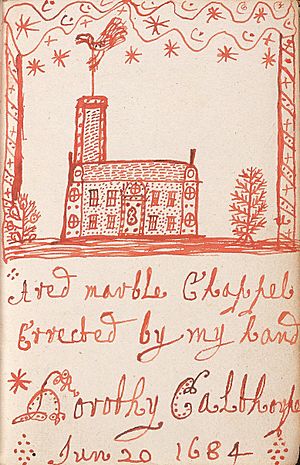 A red marble Chappel
Errected by my hand
Dorothy Calthorpe
Jun 20 1684